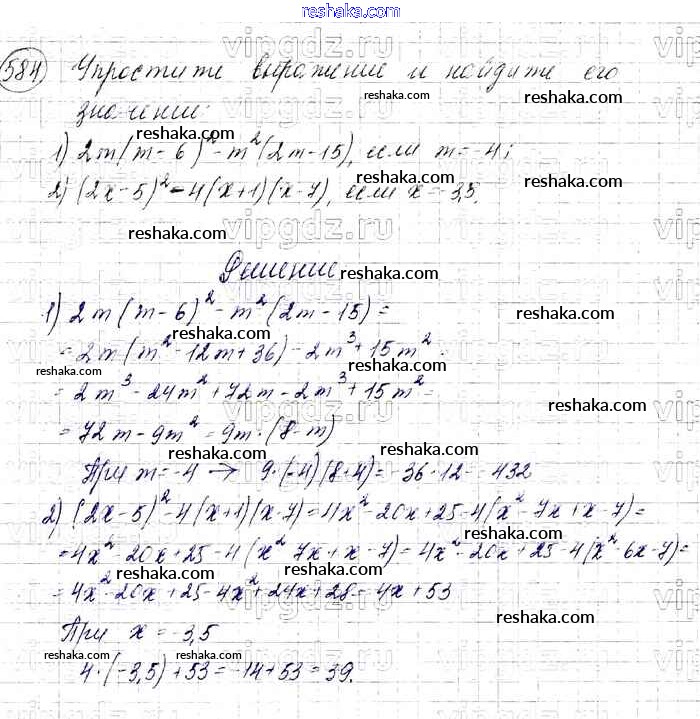 reshaka.com
584. Упростите выражение и найдите его
значение:
1) 2m(m-6)² - m²(2m-15), если m=-4;
2) (2x-5)² - 4(x+1)(x-7), если x=-3,5.
Решение
1) 2m(m-6)² - m²(2m-15) =
= 2m(m²-12m+36) - 2m³+15m² =
= 2m³-24m²+72m-2m³+15m² =
= 72m-9m² = 9m·(8-m)
При m=-4 → 9·(-4)(8+4) = -36·12 = -432
2) (2x-5)²-4(x+1)(x-7) = 4x²-20x+25-4(x²-7x+x-7) =
= 4x²-20x+25-4(x²-7x+x-7) = 4x²-20x+25-4(x²-6x-7) =
= 4x²-20x+25-4x²+24x+28 = 4x+53
При x=-3,5
4·(-3,5)+53 = -14+53 = 39.